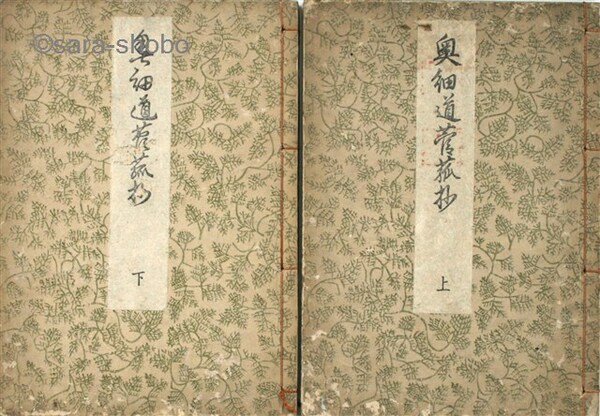 ©sara-shobo
奥細道菅菰抄
上
奥細道菅菰抄
下